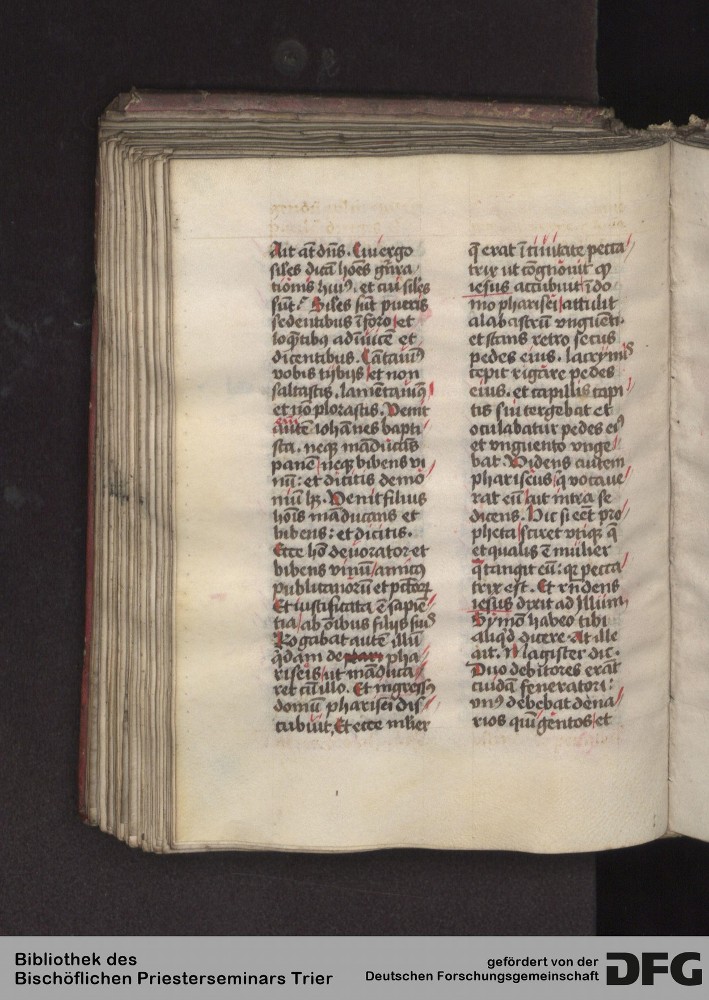 Ait at̄ dn̄s. Cui ergo
siles dicā hoēs gn̄ra
tionis huiꝰ. et cui siles
sūt. Siles sūt pueris
sedentibus ī foro et
loq̄tibꝫ ad īuicē et
dicentibus. Cātauimꝰ
vobis tibijs et non
saltastis. lamētauimꝰ
et nō plorastis. Venit
autē iohannes bapti
sta. neqꝫ māducās
panē neqꝫ bibens vi
nū: et dicitis demo
niū hꝫ. Venit filius
hoīs māducans et
bibens: et dicitis.
Ecce hō deuorator et
bibens vinū amicꝰ
publicanorū et pctōꝝ
Et iustificata ē sapiē
tia ab oībus filijs suis
Rogabat autē illū
q̄dam de pha
riseis ut māduca
ret cū illo. Et ingressꝰ
domū pharisei dis
cubuit. Et ecce mlier
q̄ erat ī ciuitate pecca
trix ut cognouit ꝙ
iesus accubuit ī do
mo pharisei attulit
alabastrū vnguēti.
et stans retro secus
pedes eius. lacrymis
cepit rigare pedes
eius. et capillis capi
tis sui tergebat et
osculabatur pedes eiꝰ
et vnguento vnge
bat. Videns autem
phariseus q̄ vocaue
rat eū ait intra se
dicens. Hic si eēt pro
pheta sciret vtiqꝫ q̄
et qualis ē mulier
q̄ tangit eū: qꝛ pecca
trix est. Et rn̄dens
iesus dixit ad illum
Symō habeo tibi
aliqd̄ dicere. At ille
ait. Magister dic.
Duo debitores erāt
cuidā feneratori:
vnꝰ debebat dena
rios quīgentos et
Bibliothek des
Bischöflichen Priesterseminars Trier
gefördert von der
Deutschen Forschungsgemeinschaft
DFG